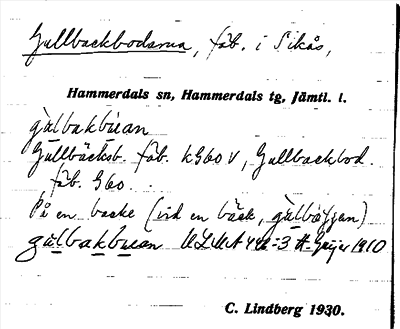 Gullbackbodarna, fäb. i Sikås,
Hammerdals sn, Hammerdals tg, Jämtl. l.
gàlbakbuan
Gullbäcksb. fäb. k G60 V, Gullbackbod.
fäb. G60.
På en backe (vid en bäck,
gàlbakbuan ULMA 44 :3 H. Geijer 1910
C. Lindberg 1930.